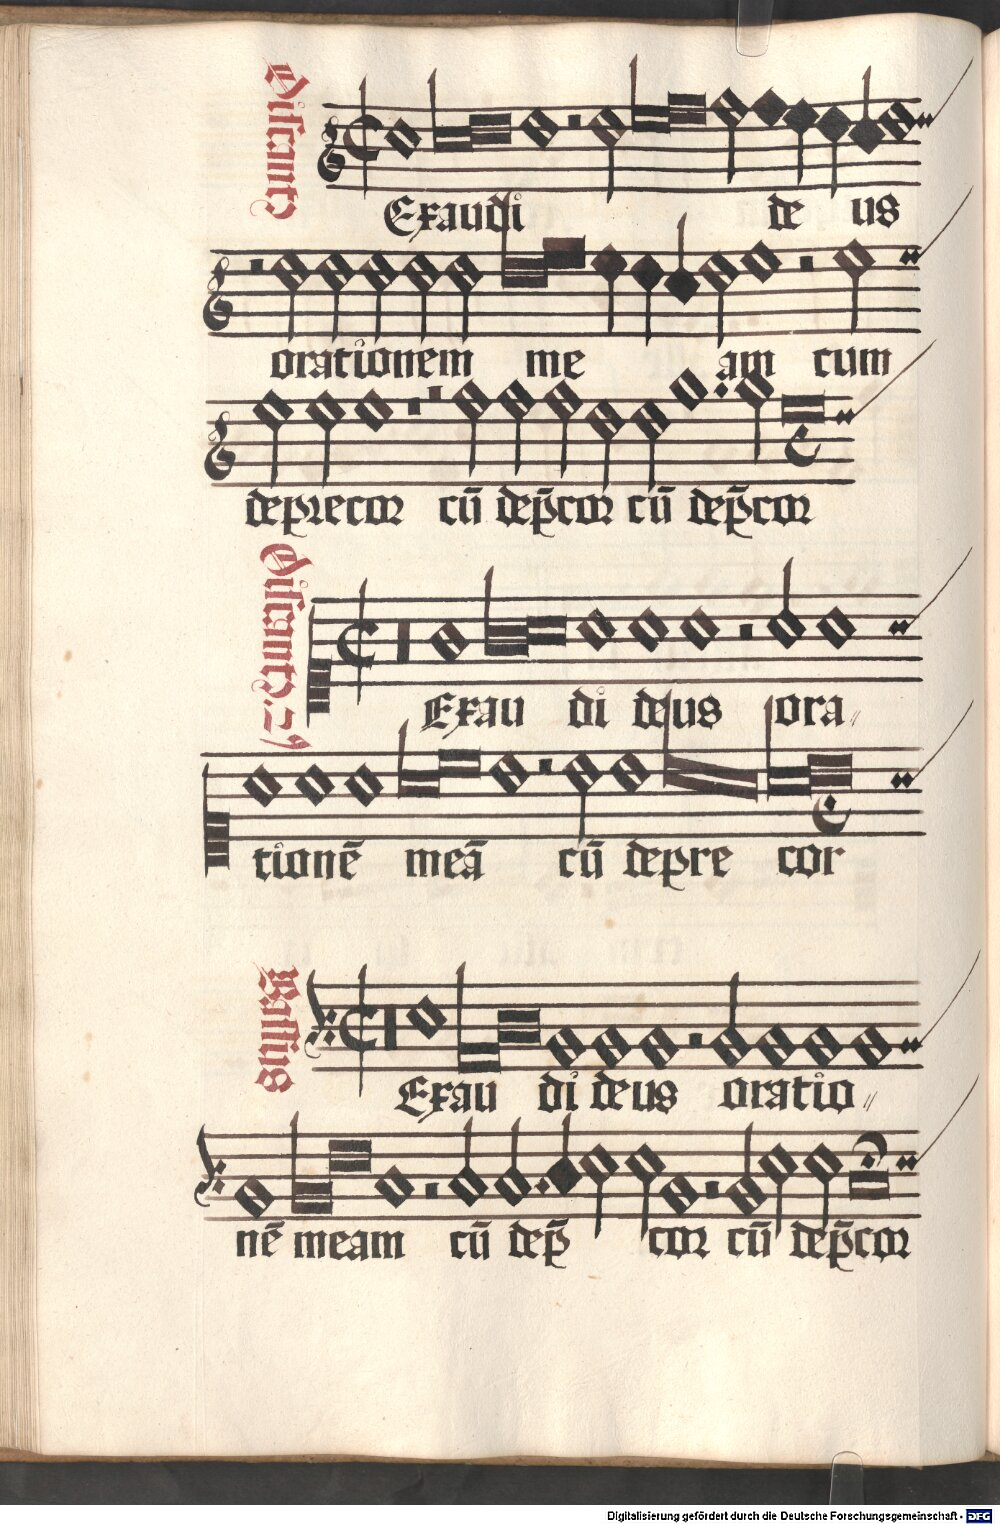 Discantꝰ
Exaudi de us
orationem me am cum
deprecor cū dep̄cor cū dep̄cor
Discantꝰ 2ꝰ
Exau di deus ora〃
tionē meā cū depre cor
Bassus
Exau di deus oratio〃
nē meam cū dep̄ cor cū dep̄cor
Digitalisierung gefördert durch die Deutsche Forschungsgemeinschaft - DFG